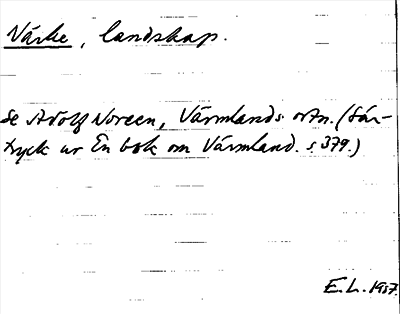 Närke, landskap.
Se Adolf Noreen, Värmlands ortn. (Sär-
tryck ur En bok om Värmland. s. 379.)
E. L. 1937.